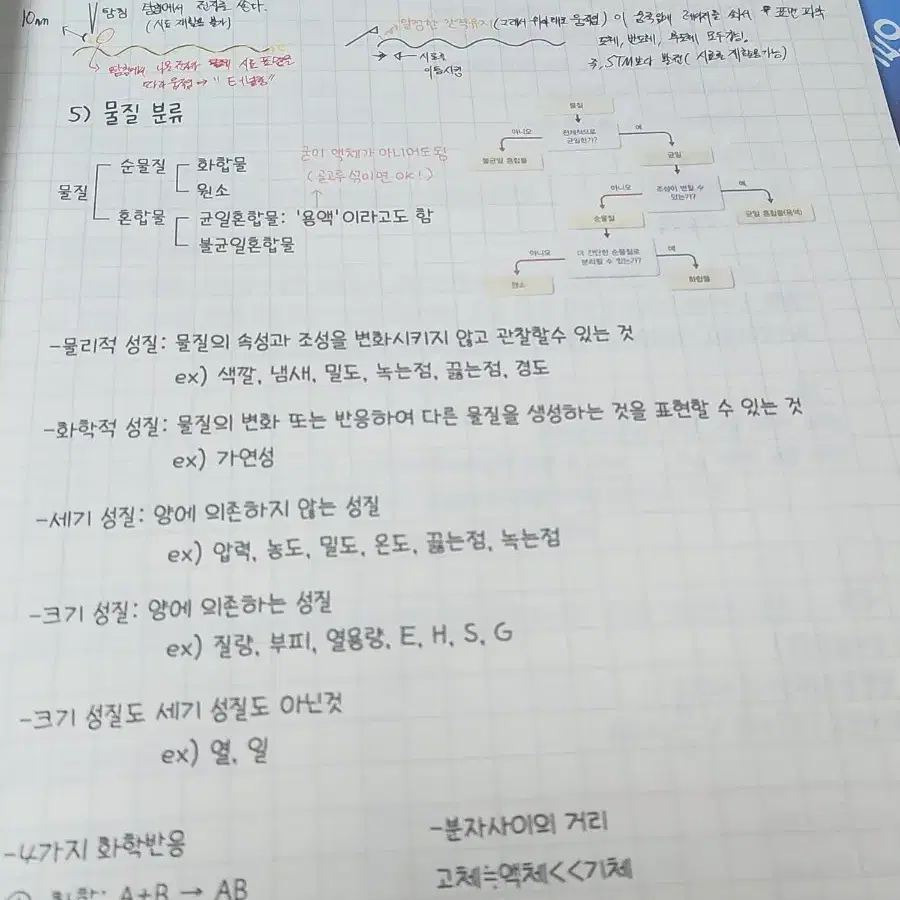 10nm
탐침
탐침에서 전자를 쏜다.
(시료 재활용 불가)
→ 탐침에서 나온 전자가 시료 표면을
따라 움직임 → "터널링"
일정한 간격유지 (그래서 위아래로 움직임) 이 움직임에 레이저를 쏴서 표면 파악
도체, 반도체, 부도체 모두 가능.
STM보다 발전 (시료를 재활용가능)
시료를
이동시킴
5) 물질 분류
물질
순물질
화합물
원소
혼합물
균일혼합물: '용액'이라고도 함
불균일혼합물
굳이 액체가 아니어도됨
(골고루 섞이면 OK!)
물질
전체적으로
균일한가?
아니오
예
불균일 혼합물
균일
조성이 변할 수
있는가?
아니오
예
순물질
균일 혼합물(용액)
더 간단한 순물질로
분리될 수 있는가?
아니오
예
원소
화합물
-물리적 성질: 물질의 속성과 조성을 변화시키지 않고 관찰할수 있는 것
ex) 색깔, 냄새, 밀도, 녹는점, 끓는점, 경도
-화학적 성질: 물질의 변화 또는 반응하여 다른 물질을 생성하는 것을 표현할 수 있는 것
ex) 가연성
-세기 성질: 양에 의존하지 않는 성질
ex) 압력, 농도, 밀도, 온도, 끓는점, 녹는점
-크기 성질: 양에 의존하는 성질
ex) 질량, 부피, 열용량, E, H, S, G
-크기 성질도 세기 성질도 아닌것
ex) 열, 일
-4가지 화학반응
① 화합: A+B → AB
-분자사이의 거리
고체≒액체<<기체